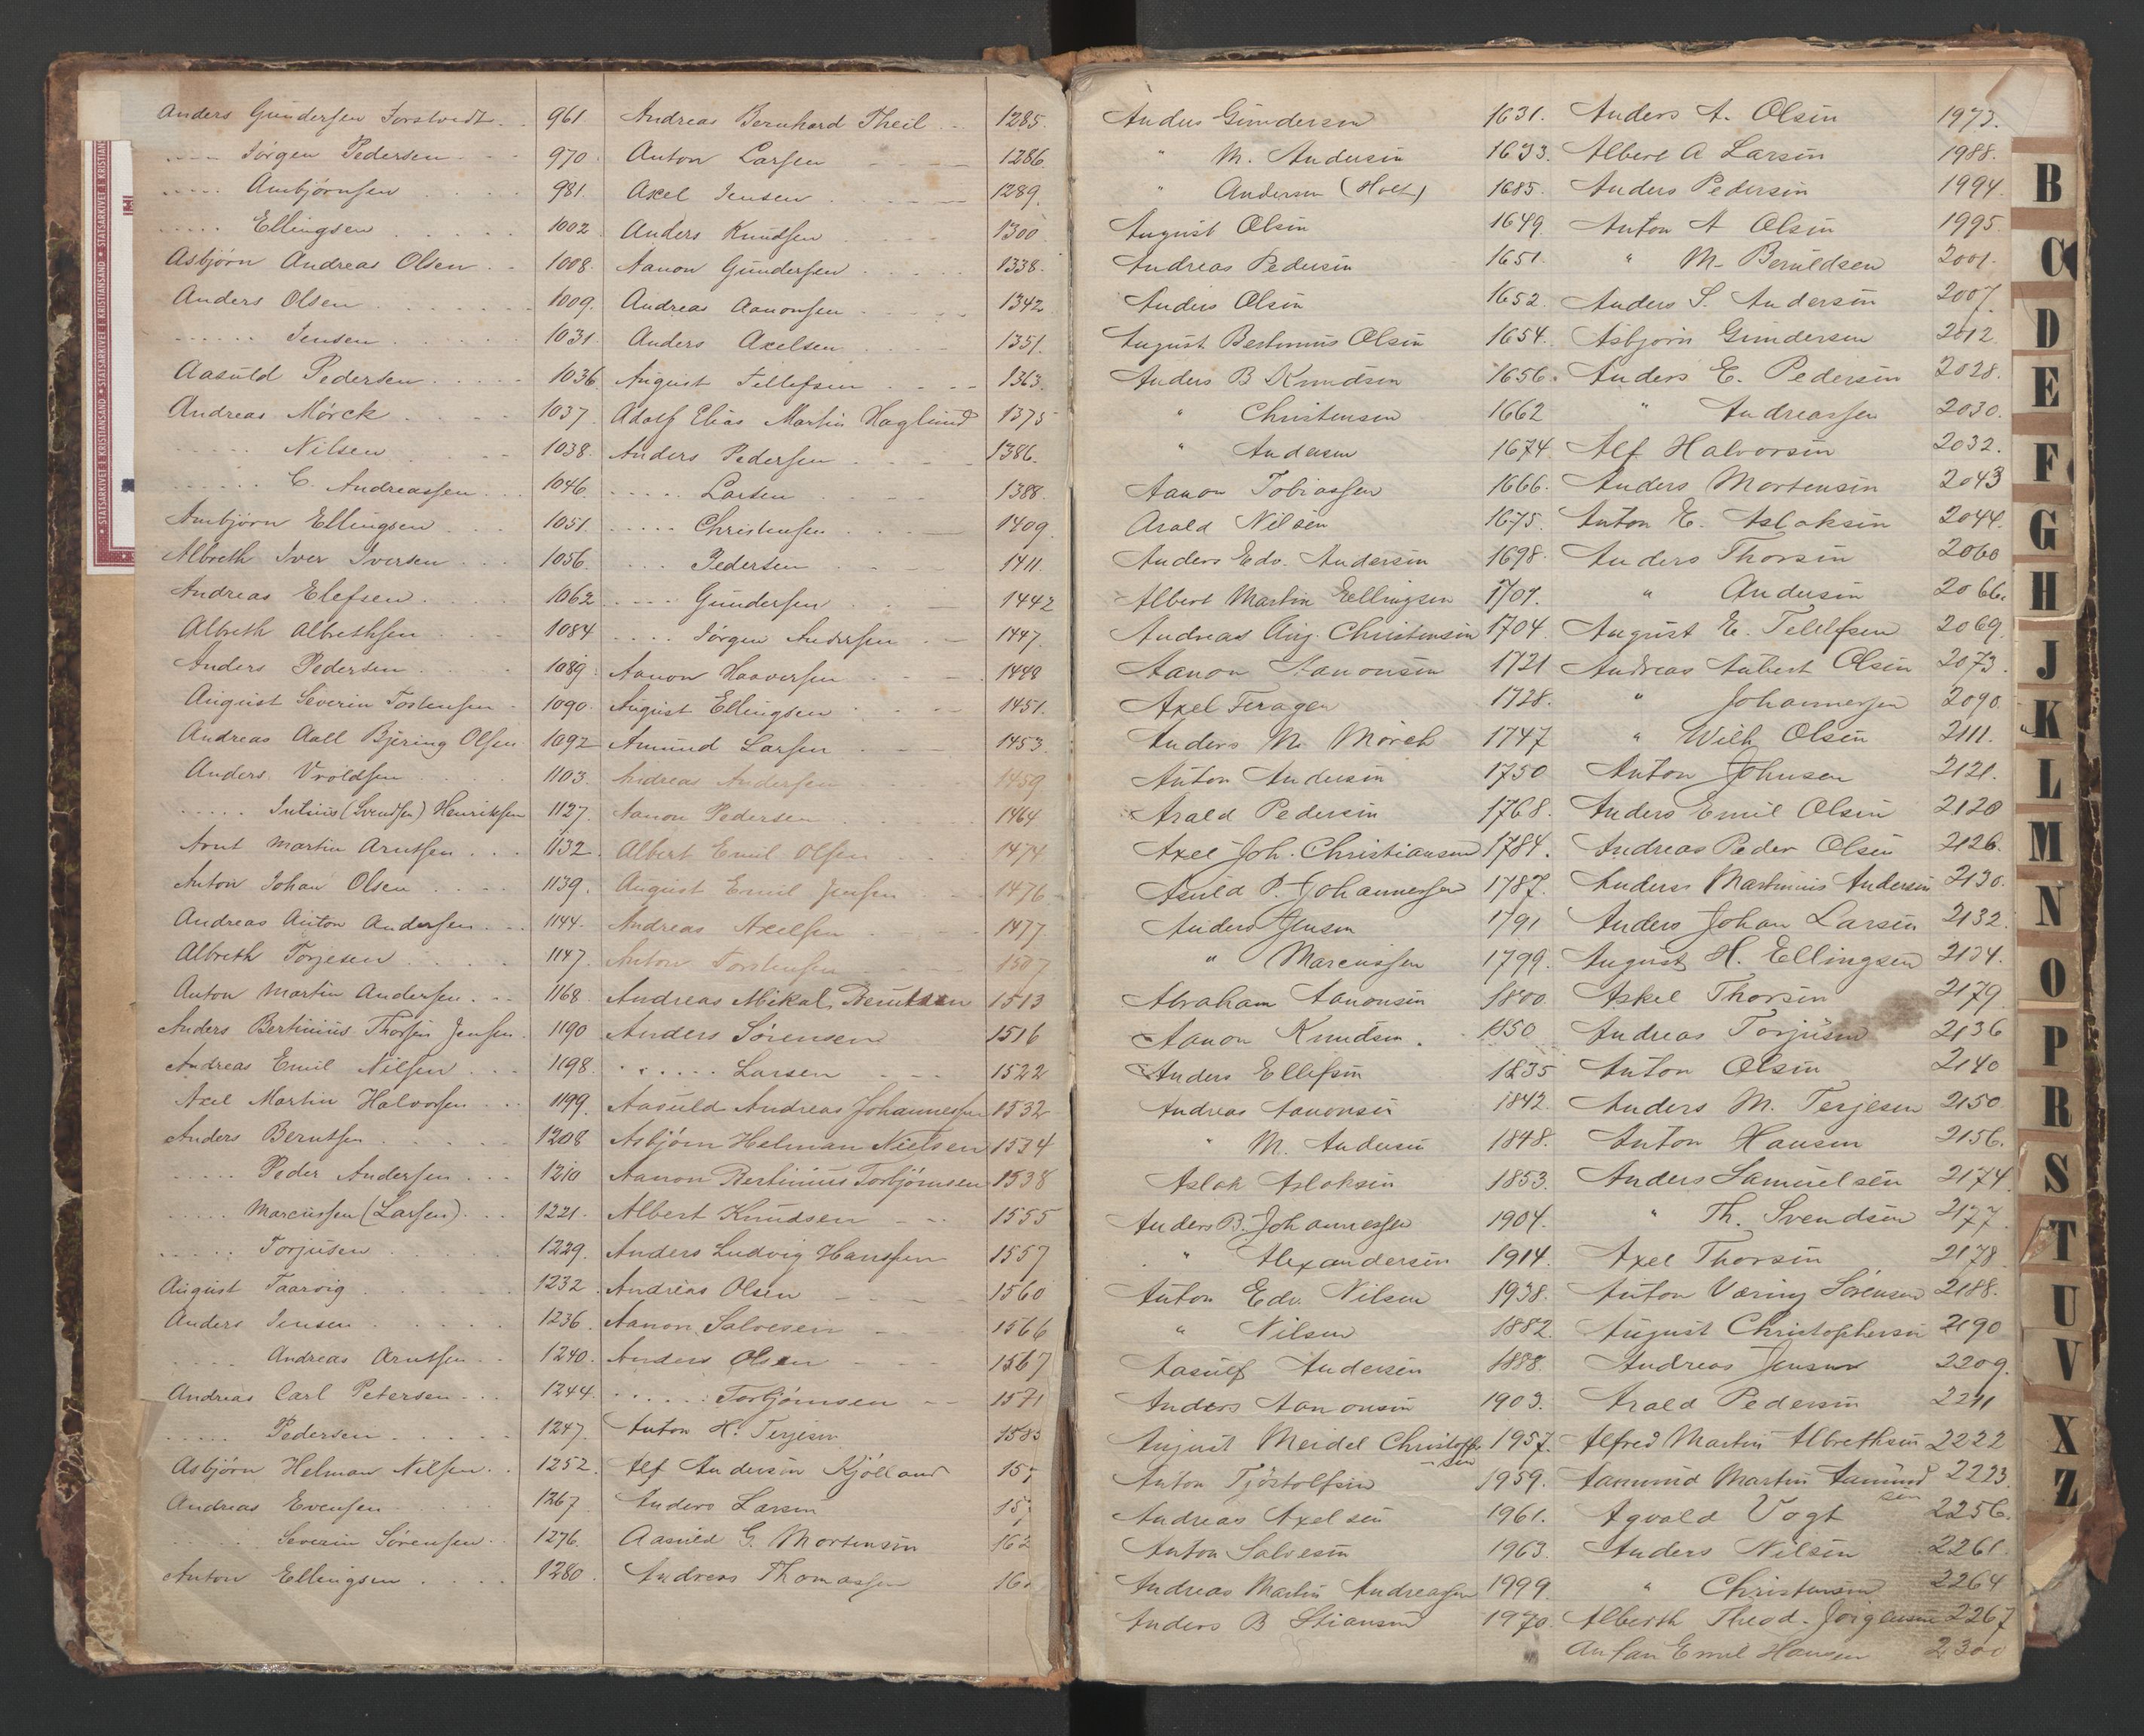 Anders Gundersen Torstvedt 961
Jørgen Pedersen 970
Ambjørnsen 981
Ellingsen 1002
Asbjørn Andreas Olsen 1008
Anders Olsen 1009
Jensen 1031
Aasuld Pedersen 1036
Andreas Mörck 1037
Nilsen 1038
C. Andreassen 1046
Ambjørn Ellingsen 1051
Albreth Iver Iversen 1056
Andreas Elefsen 1062
Albreth Albrethsen 1084
Anders Pedersen 1089
August Severin Tostensen 1090
Andreas Aall Bjering Olsen 1092
Anders Vroldsen 1103
Julius (Svendsen) Henriksen 1127
Arnt Martin Arntsen 1132
Anton Johan Olsen 1139
Andreas Anton Andersen 1144
Albreth Torjesen 1147
Anton Martin Andersen 1168
Anders Bertinius Thorsen Jensen 1190
Andreas Emil Nilsen 1198
Axel Martin Halvorsen 1199
Anders Berntsen 1208
Peder Andersen 1210
Marcussen (Larsen) 1221
Torjusen 1229
August Taarvig 1232
Anders Jensen 1236
Andreas Arntsen 1240
Andreas Carl Petersen 1244
Pedersen 1247
Asbjörn Helman Nilsen 1252
Andreas Evensen 1267
Severin Sörensen 1276
Anton Ellingsen 1280
Andreas Bernhard Theil 1285
Anton Larsen 1286
Axel Jensen 1289
Anders Knudsen 1300
Aanon Gundersen 1338
Andreas Aanonsen 1342
Anders Axelsen 1351
August Tellefsen 1363
Adolf Elias Martin Haglund 1375
Anders Pedersen 1386
Larsen 1388
Christensen 1409
Pedersen 1411
Gundersen 1442
Jörgen Andersen 1447
Aanon Haaversen 1448
August Ellingsen 1451
Amund Larsen 1453
Andreas Andersen 1459
Aanon Pedersen 1464
Albert Emil Olsen 1474
August Emil Jensen 1476
Andreas Axelsen 1477
Anton Torstensen 1507
Andreas Mikal Berntsen 1513
Anders Sörensen 1516
Larsen 1522
Aasuld Andreas Johannessen 1532
Asbjörn Helman Nielsen 1534
Aanon Bertinius Torbjörnsen 1538
Albert Knudsen 1555
Anders Ludvig Hanssen 1557
Andreas Olsen 1560
Aanon Salvesen 1566
Anders Olsen 1567
Torbjörnsen 1571
Anton H. Terjesen 1585
Alf Andersen Kjölland
Anders Larsen
Aasuld G. Mortensen
Andreas Thomassen
Anders Gundersen 1631.
" M. Andersen 1633.
" Andersen (Holt) 1685.
August Olsen 1649.
Andreas Pedersen 1651.
Anders Olsen 1652.
August Bertinius Olsen 1654.
Anders B Knudsen 1656.
" Christensen 1662
" Andersen 1674
Aanon Tobiassen 1666.
Arald Nilsen 1675.
Anders Edv. Andersen 1698.
Albert Martin Ellingsen 1701.
Andreas Aug. Christensen 1704.
Aanon Aanonsen 1721
Axel Feragen 1728.
Anders N. Mörch 1747
Anton Andersen 1750
Arald Pedersen 1768.
Axel Joh. Christiansen 1784.
Asuld P. Johannessen 1787.
Anders Jensen 1791
" Marcussen 1799.
Abraham Aanonsen 1800.
Aanon Knudsen. 1850
Anders Ellefsen 1835
Andreas Aanonsen 1842.
" M. Andersen 1848.
Aslak Aslaksen 1853.
Anders B. Johannessen 1904.
" Alexandersen 1914.
Anton Edv. Nilsen 1938.
" Nilsen 1882.
Aasulf Andersen 1888.
Anders Aanonsen 1903.
August Meidel Christoff- 1957.
-sen
Anton Tjöstolfsen 1959.
Andreas Axelsen 1961.
Anton Salvesen 1963.
Andreas Martin Andreassen 1999
Anders B Stiansen 1970.
Anders A. Olsen 1973.
Albert A Larsen 1988.
Anders Pedersen 1994.
Anton A Olsen 1995.
" M. Beruldsen 2001.
Anders S. Andersen 2007.
Asbjorn Gundersen 2012.
Anders E. Pedersen 2028.
" Andreassen 2030.
Alf Halvorsen 2032.
Anders Mortensen 2043
Anton E. Aslaksen 2044.
Anders Thorsen 2060
" Andersen 2066.
August E. Tellefsen 2069.
Andreas Aubert Olsen 2073.
" Johannessen 2090.
" Wilh Olsen 2111.
Anton Johnsen 2121.
Anders Emil Olsen 2120
Andreas Peder Olsen 2126.
Anders Martinius Andersen 2130.
Anders Johan Larsen 2132.
August H. Ellingsen 2134.
Askel Thorsen 2179
Andreas Torjusen 2136
Anton Olsen 2140
Anders M. Terjesen 2150.
Anton Hansen 2156.
Anders Samuelsen 2174.
" Th. Svendsen 2177.
Axel Thorsen 2178
Anton Væring Sörensen 2188.
August Christophersen 2190
Andreas Jensen 2209.
Arald Pedersen 2211
Alfred Martin Albrethsen 2222
Aamund Martin Aamund 2223.
sen
Agvald Vogt 2256.
Anders Nilsen 2261.
" Christensen 2264
Alberth Theod. Jörgensen 2267
Emil Hansen 2300
B
C
D
E
F
G
H
J
K
L
M
N
O
P
R
S
T
U
V
X
Z
STATSARKIVET I KRISTIANSAND • STATSARKIVET I KRISTIANSAND • STATSARKIVET I KRISTIANS